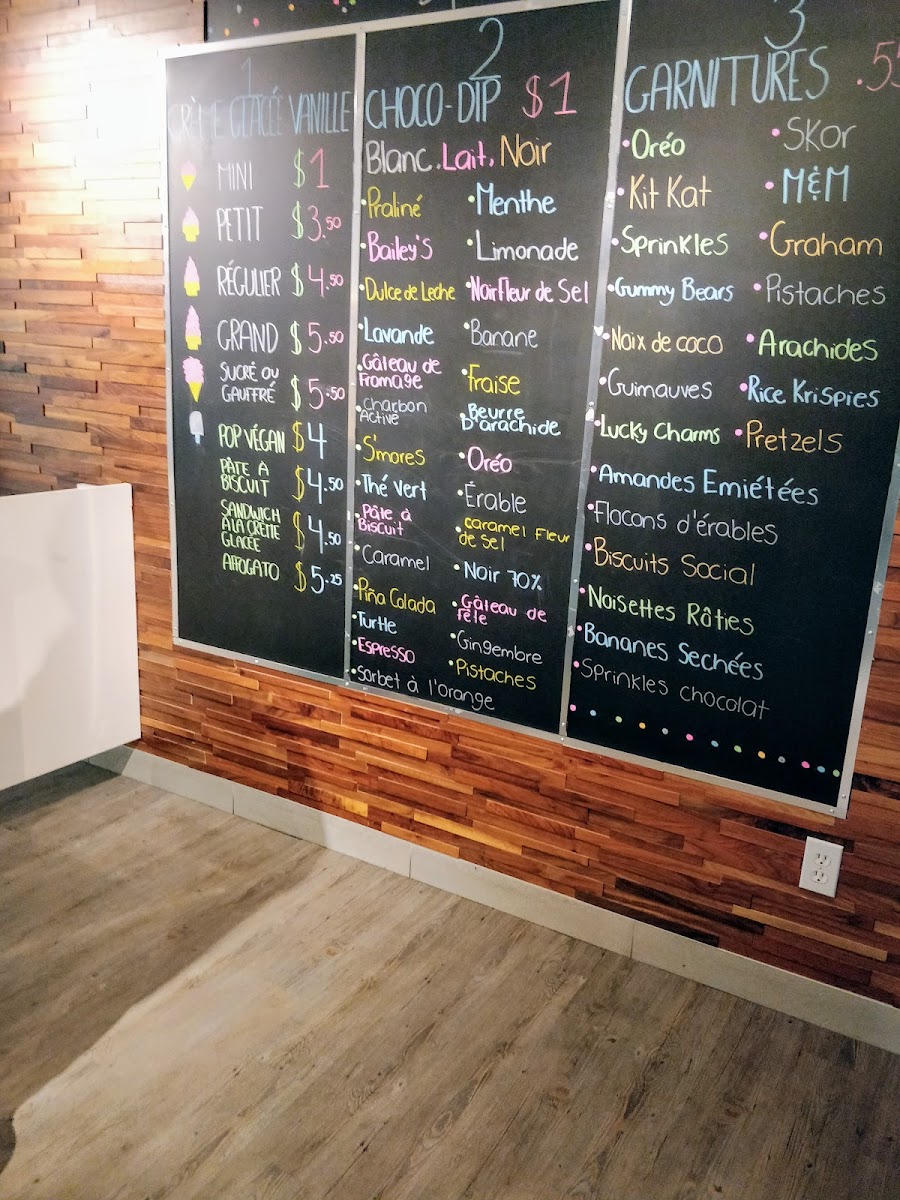 1
CRÈME GLACÉE VANILLE
MINI $1
PETIT $3.50
RÉGULIER $4.50
GRAND $5.50
SUCRÉ OU
GAUFFRÉ $5.50
POP VÉGAN $4
PÂTE À
BISCUIT $4.50
SANDWICH
À LA CRÈME
GLACÉE $4.50
AFFOGATO $5.25
2
CHOCO-DIP $1
Blanc, Lait, Noir
•Praliné
•Bailey's
•Dulce de Leche
•Lavande
•Gâteau de
Fromage
•Charbon
Activé
•S'mores
•Thé Vert
•Pâte à
Biscuit
•Caramel
•Piña Colada
•Turtle
•Espresso
•Sorbet à l'orange
•Menthe
•Limonade
•Noir Fleur de Sel
•Banane
•Fraise
•Beurre
D'arachide
•Oréo
•Érable
•Caramel Fleur
de Sel
•Noir 70%
•Gâteau de
Fête
•Gingembre
•Pistaches
3
GARNITURES .55
•Oréo
•Kit Kat
•Sprinkles
•Gummy Bears
•Noix de coco
•Guimauves
•Lucky Charms
•Amandes Emiétées
•Flocons d'érables
•Biscuits Social
•Noisettes Râties
•Bananes Sechées
•Sprinkles chocolat
•Skor
•M&M
•Graham
•Pistaches
•Arachides
•Rice Krispies
•Pretzels